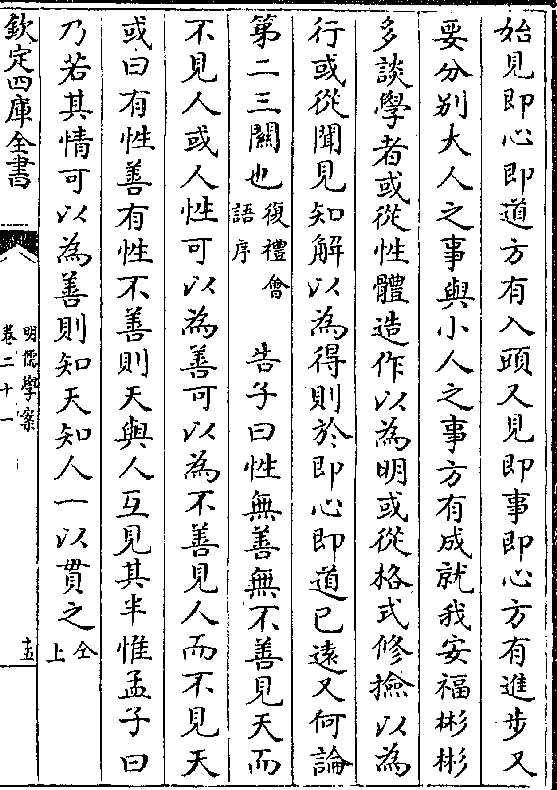 始見即心即道方有入頭又見即事即心方有進步又
要分別大人之事與小人之事方有成就我安福彬彬
多談學者或從性體造作以為明或從格式修撿以為
行或從聞見知解以為得則於即心即道已遠又何論
第二三關也復禮會
語序
告子曰性無善無不善見天而
不見人或人性可以為善可以為不善見人而不見天
或曰有性善有性不善則天與人互見其半惟孟子曰
乃若其情可以為善則知天知人一以貫之仝
上
欽定四庫全書
明儒學案
卷二十一
十五